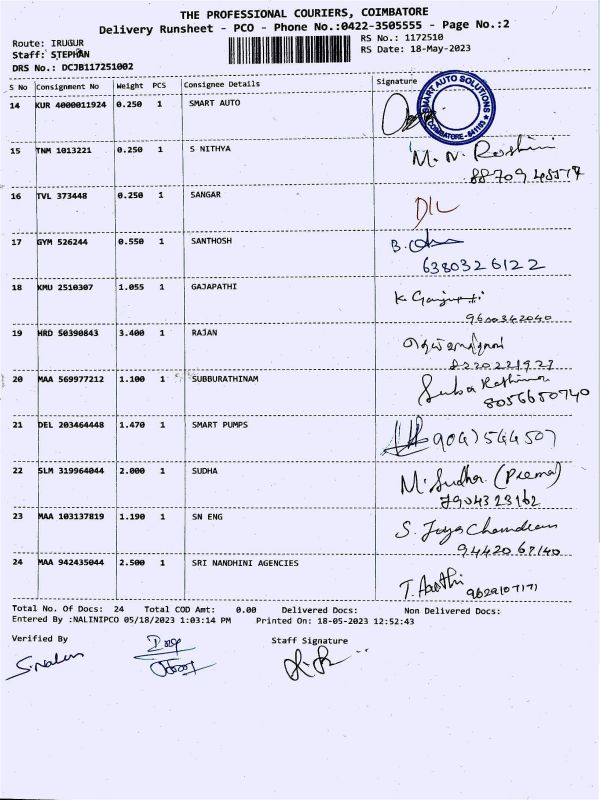 THE PROFESSIONAL COURIERS, COIMBATORE
Delivery Runsheet - PCO - Phone No.:0422-3505555 - Page No.:2
Route: IRUGUR
RS No.: 1172510
Staff: STEPHAN
RS Date: 18-May-2023
DRS No.: DCJB117251002
S No Consignment No Weight PCS Consignee Details Signature
14 KUR 4000011924 0.250 1 SMART AUTO
SMART AUTO SOLUTIONS ★ COIMBATORE - 641103 ★
15 TNM 1013221 0.250 1 S NITHYA M. N. Roshini
16 TVL 373448 0.250 1 SANGAR
17 GYM 526244 0.550 1 SANTHOSH
6380326122
18 KMU 2510307 1.055 1 GAJAPATHI
9600342040
19 HRD 50390843 3.400 1 RAJAN
8220221927
20 MAA 569977212 1.100 1 SUBBURATHINAM
8056650740
21 DEL 203464448 1.470 1 SMART PUMPS 9047544507
22 SLM 319964044 2.000 1 SUDHA M. Sudha (Prema)
7904323162
23 MAA 103137819 1.190 1 SN ENG S. Jaya Chandran
9442067140
24 MAA 942435044 2.500 1 SRI NANDHINI AGENCIES T. Aarthi 9629107171
Total No. Of Docs: 24 Total COD Amt: 0.00 Delivered Docs: Non Delivered Docs:
Entered By :NALINIPCO 05/18/2023 1:03:14 PM Printed On: 18-05-2023 12:52:43
Verified By Staff Signature